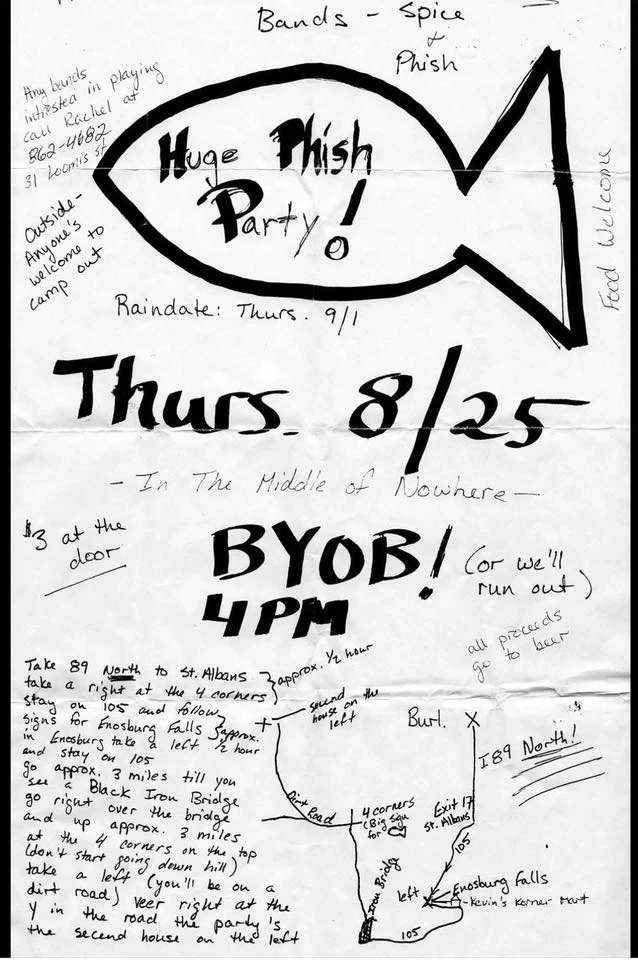 Bands - Spice
+
Phish
Any bands
intrested in playing
call Rachel at
862-4682
31 Loomis st.
Huge Phish
Party!
Outside-
Anyone's
welcome to
camp out
Food Welcome
Raindate: Thurs. 9/1
Thurs. 8/25
- In The Middle of Nowhere -
$3 at the
door
BYOB!
(or we'll
run out)
4PM
all proceeds
go to beer
Take 89 North to St. Albans
take a right at the 4 corners
stay on 105 and follow
signs for Enosburg Falls
in Enosburg take a left
and stay on 105
go approx. 3 miles till you
see a Black Iron Bridge
go right over the bridge
and up approx. 3 miles
at the 4 corners on the top
(don't start going down hill)
take a left (you'll be on a
dirt road) veer right at the
Y in the road the party's
the second house on the left
approx. 1/2 hour
approx.
1/2 hour
second
house on the
left
Burl. X
I89 North!
Dirt Road
4 corners
(Big sign
for
Exit 17
St. Albans
105
Iron Bridg
left
Enosburg Falls
-Kevin's Korner Mart
105